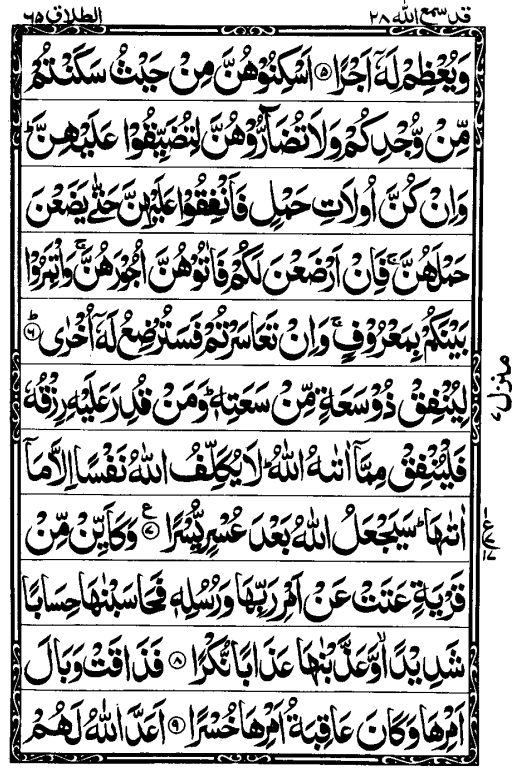 قد سمع الله ٢٨
الطلاق ٦٥
وَيُعْظِمْ لَهٗۤ اَجْرًا ۝٥ اَسْكِنُوْهُنَّ مِنْ حَيْثُ سَكَنْتُمْ
مِّنْ وُّجْدِكُمْ وَلَا تُضَآرُّوْهُنَّ لِتُضَيِّقُوْا عَلَيْهِنَّ ؕ
وَاِنْ كُنَّ اُولَاتِ حَمْلٍ فَاَنْفِقُوْا عَلَيْهِنَّ حَتّٰى يَضَعْنَ
حَمْلَهُنَّ ۚ فَاِنْ اَرْضَعْنَ لَكُمْ فَاٰتُوْهُنَّ اُجُوْرَهُنَّ ۚ وَاْتَمِرُوْا
بَيْنَكُمْ بِمَعْرُوْفٍ ۚ وَاِنْ تَعَاسَرْتُمْ فَسَتُرْضِعُ لَهٗۤ اُخْرٰى ؕ۝٦
لِيُنْفِقْ ذُوْ سَعَةٍ مِّنْ سَعَتِهٖ ؕ وَمَنْ قُدِرَ عَلَيْهِ رِزْقُهٗ
فَلْيُنْفِقْ مِمَّاۤ اٰتٰىهُ اللّٰهُ ؕ لَا يُكَلِّفُ اللّٰهُ نَفْسًا اِلَّا مَاۤ
اٰتٰىهَا ؕ سَيَجْعَلُ اللّٰهُ بَعْدَ عُسْرٍ يُّسْرًا ۝٧ ع وَكَاَيِّنْ مِّنْ
قَرْيَةٍ عَتَتْ عَنْ اَمْرِ رَبِّهَا وَرُسُلِهٖ فَحَاسَبْنٰهَا حِسَابًا
شَدِيْدًا ۙ وَّعَذَّبْنٰهَا عَذَابًا نُّكْرًا ۝٨ فَذَاقَتْ وَبَالَ
اَمْرِهَا وَكَانَ عَاقِبَةُ اَمْرِهَا خُسْرًا ۝٩ اَعَدَّ اللّٰهُ لَهُمْ
منزل ٧